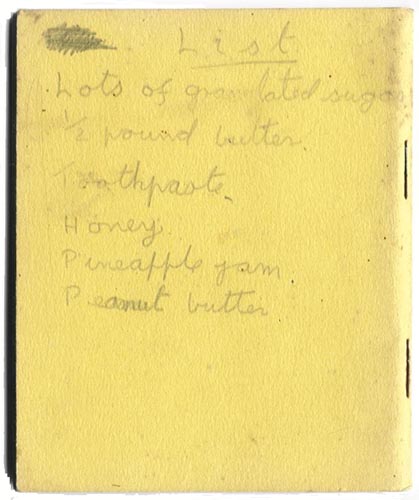 List
Lots of granulated sugar
1/2 pound butter
Toothpaste.
Honey.
Pineapple jam
Peanut butter